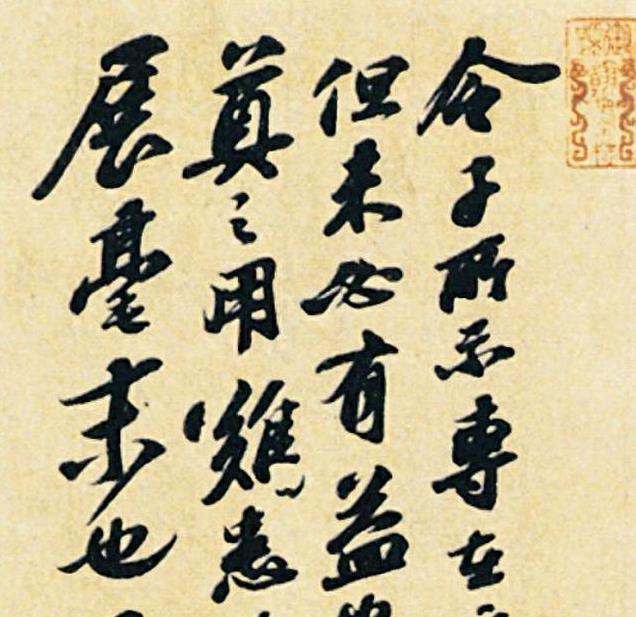 令子所示專在
但未必有益
之用雖悉
展毫末也